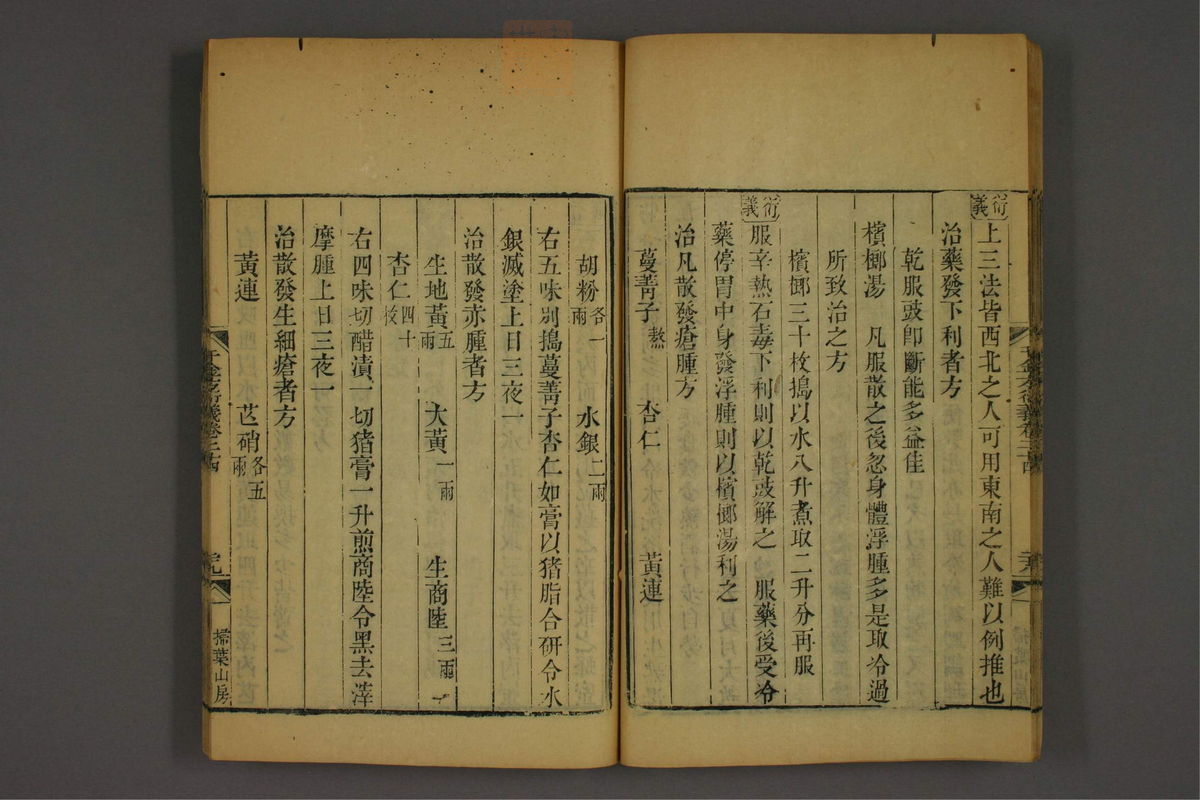 衍義上三法皆西北之人可用東南之人難以例推也
治藥發下利者方
乾服豉卽斷能多益佳
檳榔湯　凡服散之後忽身體浮腫多是取冷過
所致治之方
檳榔三十枚搗以水八升煮取二升分再服
衍義服辛熱石毒下利則以乾豉解之　服藥後受冷
藥停胃中身發浮腫則以檳榔湯利之
治凡散發瘡腫方
蔓菁子熬　杏仁　黃連
胡粉各一兩　水銀二兩
右五味別搗蔓菁子杏仁如膏以猪脂合研令水
銀滅塗上日三夜一
治散發赤腫者方
生地黃五兩　大黃一兩　生商陸三兩
杏仁四十枚
右四味切醋漬一切猪膏一升煎商陸令黑去滓
摩腫上日三夜一
治散發生細瘡者方
黃連　芒硝各五兩
千金方衍義卷二十四
掃葉山房